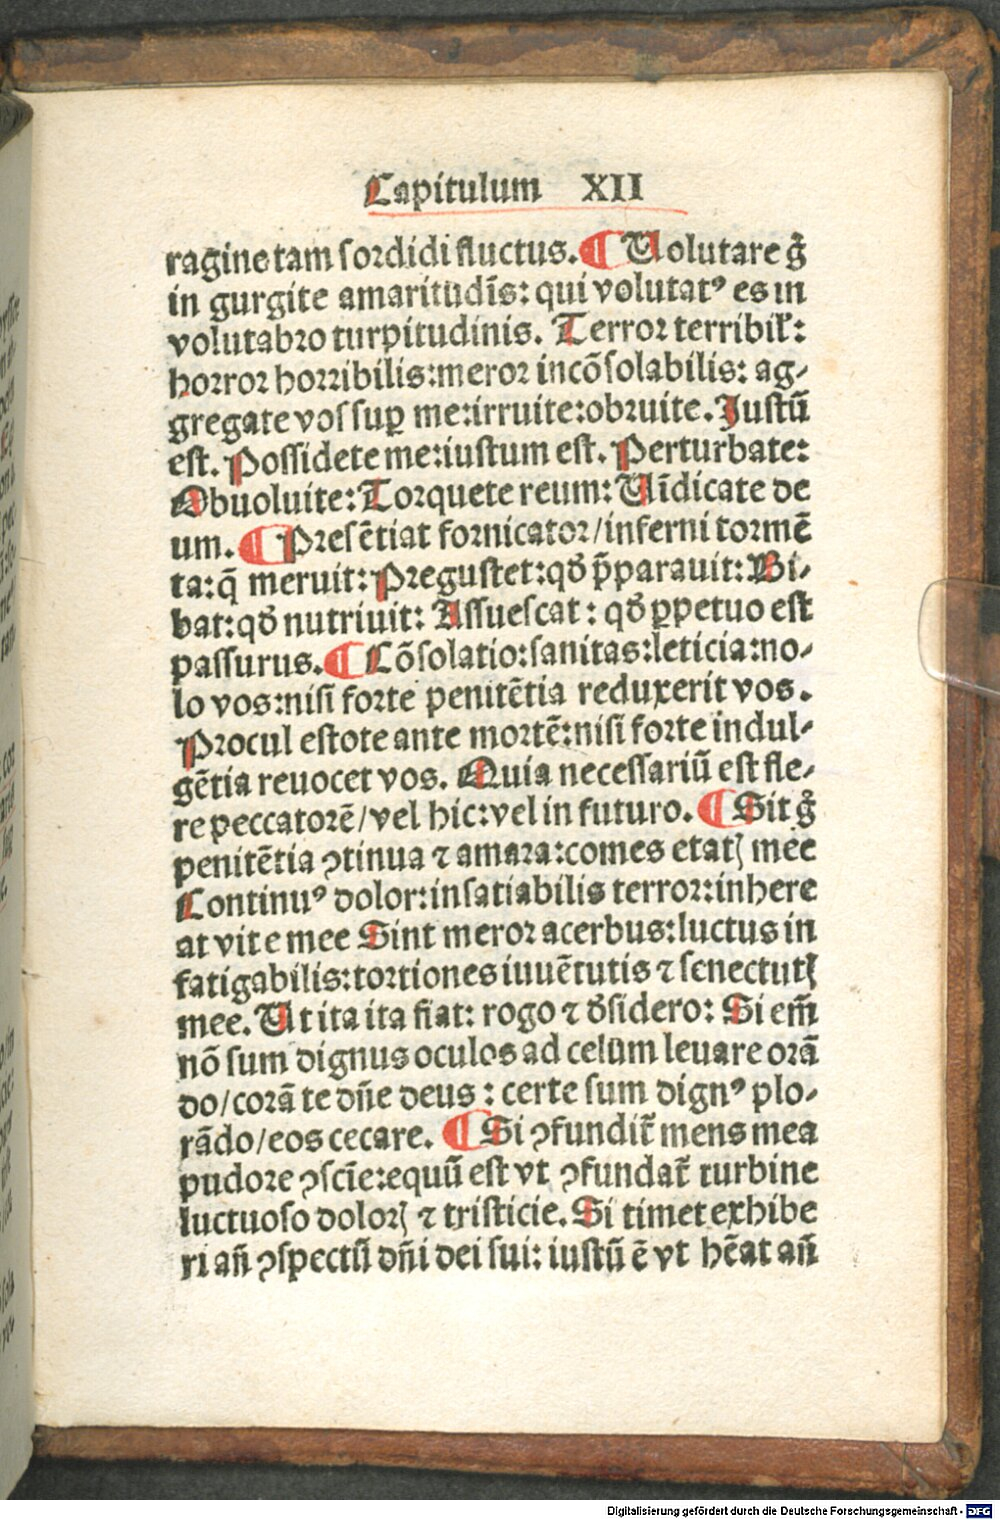 Capitulum XII
ragine tam ſordidi fluctus. ¶ Uolutare g̊
in gurgite amaritudīs: qui volutatꝰ es in
volutabro turpitudinis. Terror terribil̕:
horror horribilis:meror incōſolabilis: ag-
gregate voſ ſuꝑ me:irruite:obruite. Juſtū
eſt. Poſſidete me:iuſtum eſt. Perturbate:
Obuoluite: Torquete reum: Uīdicate de
um. ¶ Preſētiat fornicator/inferni tormē
ta:q̄ meruit: Preguſtet:qd̕ p̄parauit: Bi-
bat:qd̕ nutriuit: Aſſueſcat: qd̕ ꝑpetuo eſt
paſſurus. ¶ Cōſolatio:ſanitas:leticia:no-
lo vos:niſi forte penitētia reduxerit vos.
Procul eſtote ante mortē:niſi forte indul-
gētia reuocet vos. Quia neceſſariū eſt fle-
re peccatorē/vel hic:vel in futuro. ¶ Sit g̊
penitētia ꝯtinua ⁊ amara:comes etatꝭ mee
Continuꝰ dolor:inſatiabilis terror:inhere
at vite mee Sint meror acerbus:luctus in
fatigabilis:tortiones iuuētutis ⁊ ſenectutꝭ
mee. Ut ita ita fiat: rogo ⁊ d̕ſidero: Si em̄
nō ſum dignus oculos ad celum leuare orā
do/corā te dn̄e deus: certe ſum dignꝰ plo-
rādo/eos cecare. ¶ Si ꝯfundit᷑ mens mea
pudore ꝯſcīe:equū eſt vt ꝯfundat᷑ turbine
luctuoſo dolorꝭ ⁊ triſticie. Si timet exhibe
ri an̄ ꝯſpectū dn̄i dei ſui: iuſtū ē vt hēat an̄
Digitalisierung gefördert durch die Deutsche Forschungsgemeinschaft - DFG